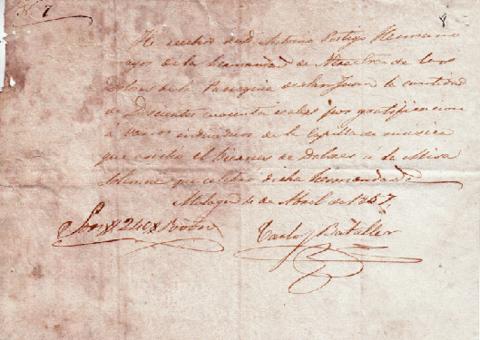 Nº 7
8
He recibido de D. Antonio Ortega Hermano
mayor de la hermandad de Nuestra Sra de los
Dolores de la Parroquia de San Juan la cantidad
de Doscientos cuarenta reales por gratificacion
a varios individuos de la capilla de musica
que asistio el Viernes de Dolores á la Misa
solemne que celebró dicha hermandad
Malaga 4 de Abril de 1857,
Son 240 Rvon
Carlos Bataller